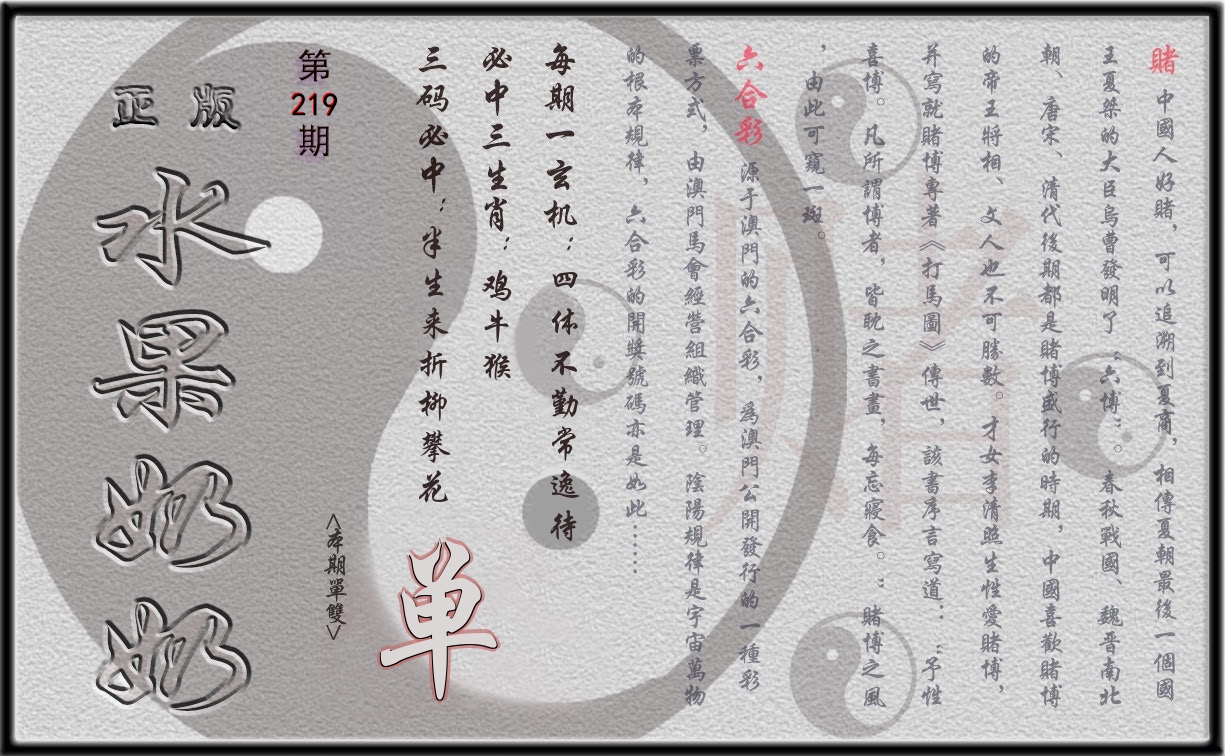 賭 中國人好賭，可以追溯到夏商，相傳夏朝最後一個國
王夏桀的大臣烏曹發明了“六博”。春秋戰國、魏晉南北
朝、唐宋、清代後期都是賭博盛行的時期，中國喜歡賭博
的帝王將相、文人也不可勝數。才女李清照生性愛賭博，
并寫就賭博專著《打馬圖》傳世，該書序言寫道：“予性
喜博。凡所謂博者，皆耽之書畫，每忘寢食。”賭博之風
，由此可窺一斑。
六合彩 源于澳門的六合彩，為澳門公開發行的一種彩
票方式，由澳門馬會經營組織管理。陰陽規律是宇宙萬物
的根本規律，六合彩的開獎號碼亦是如此……
賭
每期一玄机：四体不勤常逸待
必中三生肖：鸡牛猴
三码必中：半生来折柳攀花
单
<本期單雙>
第219期
正版
水果奶奶